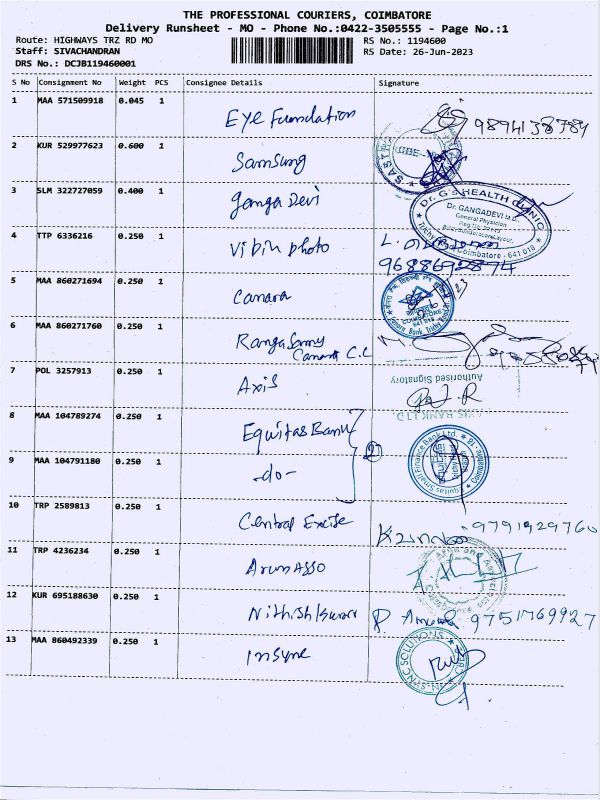 THE PROFESSIONAL COURIERS, COIMBATORE
Delivery Runsheet - MO - Phone No.:0422-3505555 - Page No.:1
Route: HIGHWAYS TRZ RD MO
RS No.: 1194600
Staff: SIVACHANDRAN
RS Date: 26-Jun-2023
DRS No.: DCJB119460001
S No Consignment No Weight PCS Consignee Details Signature
1 MAA 571509918 0.045 1 Eye Foundation 9894138784
2 KUR 529977623 0.600 1 Samsung
3 SLM 322727059 0.400 1 Ganga Devi
Dr. G's HEALTH CLINIC
Dr. GANGADEVI
General Physician
Coimbatore - 641 015
4 TTP 6336216 0.250 1 Vibin photo
9688692874
5 MAA 860271694 0.250 1 Canara
6 MAA 860271760 0.250 1 Rangasamy
Canara C.L
7 POL 3257913 0.250 1 Axis
Authorised Signatory
AXIS BANK LTD
8 MAA 104789274 0.250 1 Equitas Bank
Equitas Small Finance Bank Ltd.
9 MAA 104791180 0.250 1 -do-
10 TRP 2589813 0.250 1 Central Excise 9791929760
11 TRP 4236234 0.250 1 Arun Asso
12 KUR 695188630 0.250 1 Nithishkumar 9751769927
13 MAA 860492339 0.250 1 Insync
IN-SYNC SOLUTIONS